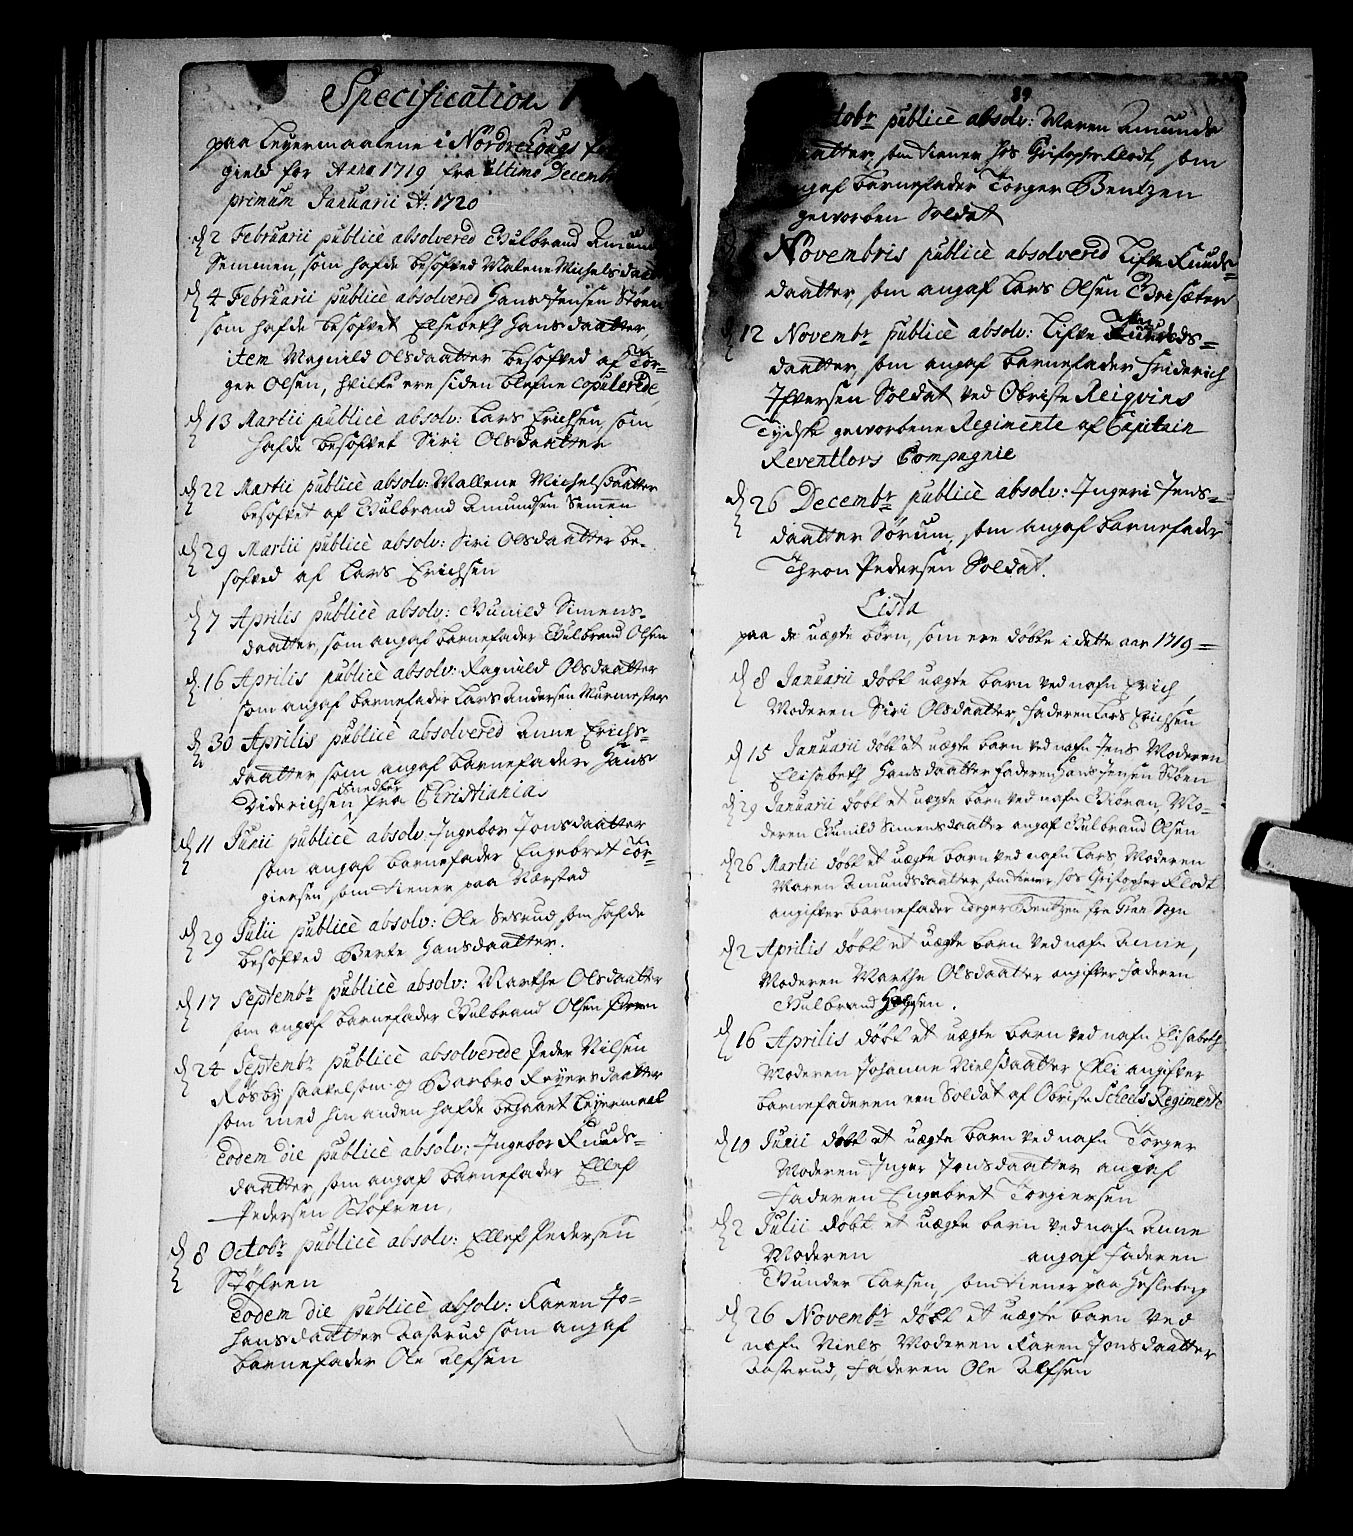 Specification
paa Leyermaalene i Nordrehougs
gield for Anno 1719 fra ultimo Decemb
primum Januarii A: 1720
D 2 Februarii publicè absolvered Gulbrand Amund
Semmen, som hafde besofved Malene Michelsdaat
D 4 Februarii publicè absolvered Hans Jensen Støen
som hafde besofvet Elsebeth Hansdaatter,
item Magnild Olsdaatter besofved af Tor-
ger Olsen, hvilke ere siden blefne Copulerede,
D 13 Martii publicè absolv: Lars Erichsen, som
hafde besofvet Siri Olsdaatter
D 22 Martii publicè absolv: Mallene Michelsdaatter
besofvet af Gulbrand Amundsen Semen
D 29 Martii publicè absolv: Siri Olsdaatter be-
sofved af Lars Erichsen
D 7 Aprilis publicè absolv: Gunild Simens-
daatter, som angaf barnefader Gulbrand Olsen
D 16 Aprilis publicè absolv: Ragnild Olsdaatter
som angaf barnefader Lars Andersen Murmester
D 30 Aprilis publicè absolvered Anne Erichs-
daatter som angaf barnefader Hans
Diderichsen snedker fra Christiania
D 11 Junii publicè absolv: Ingebor Jonsdaatter
som angaf barnefader Engebret Tor-
giersen som tiener paa Nærstad
D 29 Julii publicè absolv: Ole Sesrud som hafde
besofved Berte Hansdaatter.
D 17 Septembr publicè absolv: Marthe Olsdaatter
som angaf barnefader Gulbrand Olsen
D 24 Septembr publicè absolverede Peder Nilsen
Røsby saavelsom og Barbro Reyersdaatter
som med hin anden hafde begaaet Leyermaal
Eodem die publicè absolv: Ingebor Knuds-
daatter som angaf barnefader Ellef
Pedersen Støfren,
D 8 Octobr publicè absolv: Ellef Pedersen
Støfren
Eodem die publicè absolv: Karen Jo-
hansdaatter Aasterud som angaf
barnefader Ole Alfsen
89
tobr publicè absolv: Maren Amunds
aatter, som tiener hos Christopher Klodt, som
ngaf barnefader Torger Bentzen
gevorben Soldat
Novembris publicè absolvered Lisve Knuds-
daatter, som angaf Lars Olsen Grisæter
D 12 Novembr publicè absolv: Lisve
daatter, som angaf barnefader Friderich
Ifversen Soldat ved Obriste Reigvins
Tydske gevorbene Regimente af Capitain
Reventlovs Compagnie
D 26 Decembr publicè absolv: Ingeri Jens-
daatter Sørum, som angaf barnefader
Thron Pedersen Soldat.
Lista
paa de uægte børn, som ere døbte i dette aar 1719 =
D 8 Januarii døbt uægte barn ved nafn Erich,
Moderen Siri Olsdaatter, faderen Lars Erichsen
D 15 Januarii døbt et uægte barn ved nafn Jens Moderen
Elisabeth Hansdaatter faderen Hans Jensen Støen
D 29 Januarii døbt et uægte barn ved nafn Giøran, Mo-
deren Gunild Simensdaatter angaf Gulbrand Olsen
D 26 Martii døbt et uægte barn ved nafn Lars Moderen
Maren Amundsdaatter, som tiener hos Christopher Klodt
angifver barnefader Torger Bentzen fra Gran Sogn
D 2 Aprilis døbt et uægte barn ved nafn Anne,
Moderen Marthe Olsdaatter angifver faderen
Gulbrand
D 16 Aprilis døbt et uægte barn ved nafn Elisabeth
Moderen Johanne Nielsdaatter Ekli angifver
barnefaderen een Soldat af Obriste Scheels Regimente
D 10 Junii døbt et uægte barn ved nafn Torger
Moderen Inger Jonsdaatter angaf
faderen Engebret Torgiersen
D 2 Julii døbt et uægte barn ved nafn Anne
Moderen angaf faderen
Gunder Larsen, som tiener paa Hesleberg
D 26 Novembr døbt et uægte barn ved
nafn Niels, Moderen Karen Jonsdaatter
Aasterud, faderen Ole Alfsen